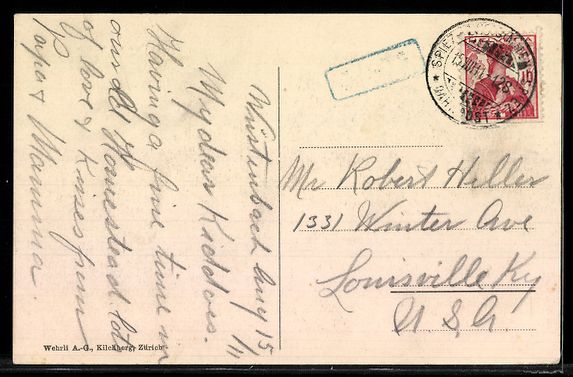 Wüstenbach Aug 15/11
My dear Kiddoes.
Having a fine time in
our old Homestead lots
of love & kisses from
Papa & Mamma.
Mr Robert Heller
1331 Winter Ave
Louisville Ky
U.S.A.
SPIEZ
10
Wehrli A.-G., Kilchberg, Zürich